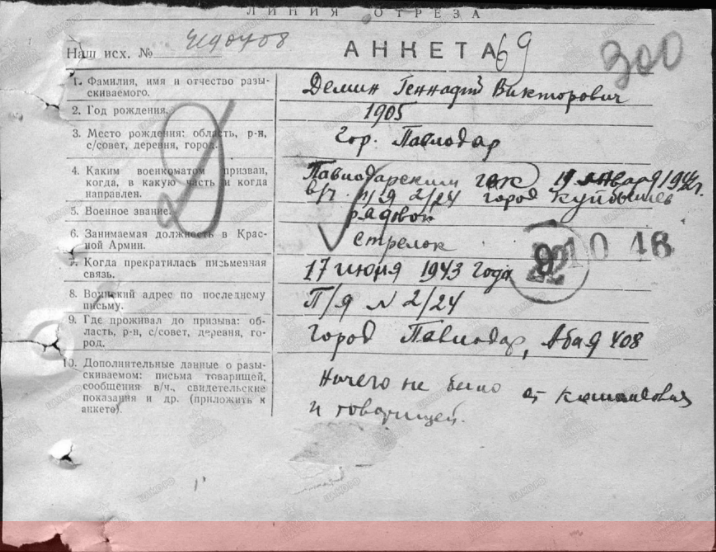 ЛИНИЯ ОТРЕЗА
Наш исх. №
АНКЕТА 69
300
1. Фамилия, имя и отчество разы-
скиваемого.
Демин Геннадий Викторович
2. Год рождения.
1905
3. Место рождения: область, р-н,
с/совет, деревня, город.
Гор. Павлодар
4. Каким военкоматом призван,
когда, в какую часть и когда
направлен.
Павлодарским гвк 19 января 1942 г.
в/ч п/я 2/24 город Куйбышев
5. Военное звание.
рядовой
6. Занимаемая должность в Крас-
ной Армии.
стрелок
10 46
7. Когда прекратилась письменная
связь.
17 июня 1943 года
8. Воинский адрес по последнему
письму.
П/я N 2/24
9. Где проживал до призыва: об-
ласть, р-н, с/совет, деревня, го-
род.
город Павлодар, Абая 408
10. Дополнительные данные о разы-
скиваемом: письма товарищей,
сообщения в/ч., свидетельские
показания и др. (приложить к
анкете).
Ничего не было от
и товарищей.